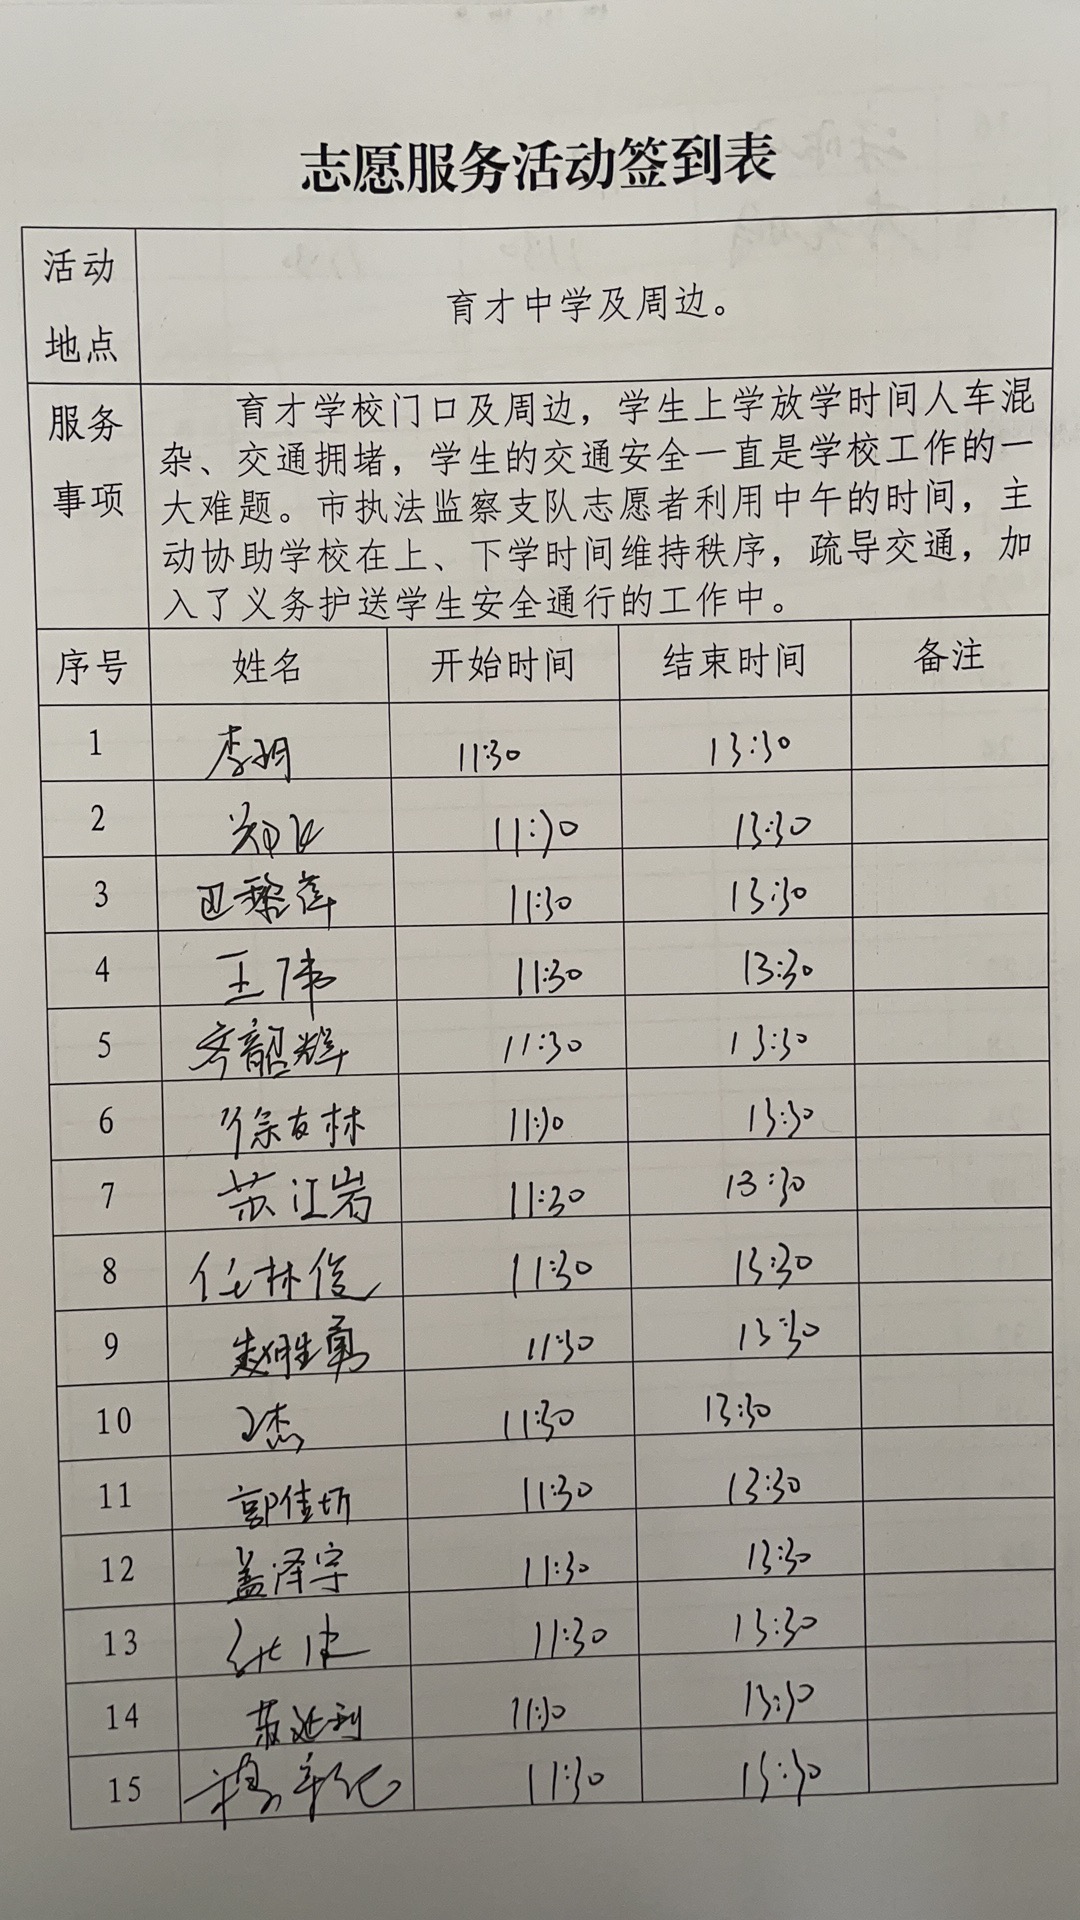 志愿服务活动签到表
活动地点
育才中学及周边。
服务事项
育才学校门口及周边，学生上学放学时间人车混
杂、交通拥堵，学生的交通安全一直是学校工作的一
大难题。市执法监察支队志愿者利用中午的时间，主
动协助学校在上、下学时间维持秩序，疏导交通，加
入了义务护送学生安全通行的工作中。
序号 姓名 开始时间 结束时间 备注
1 11:30 13:30
2 11:30 13:30
3 11:30 13:30
4 王伟 11:30 13:30
5 11:30 13:30
6 徐友林 11:30 13:30
7 苏江岩 11:30 13:30
8 任林俊 11:30 13:30
9 赵胜勇 11:30 13:30
10 王杰 11:30 13:30
11 11:30 13:30
12 盖泽宇 11:30 13:30
13 11:30 13:30
14 11:30 13:30
15 11:30 13:30